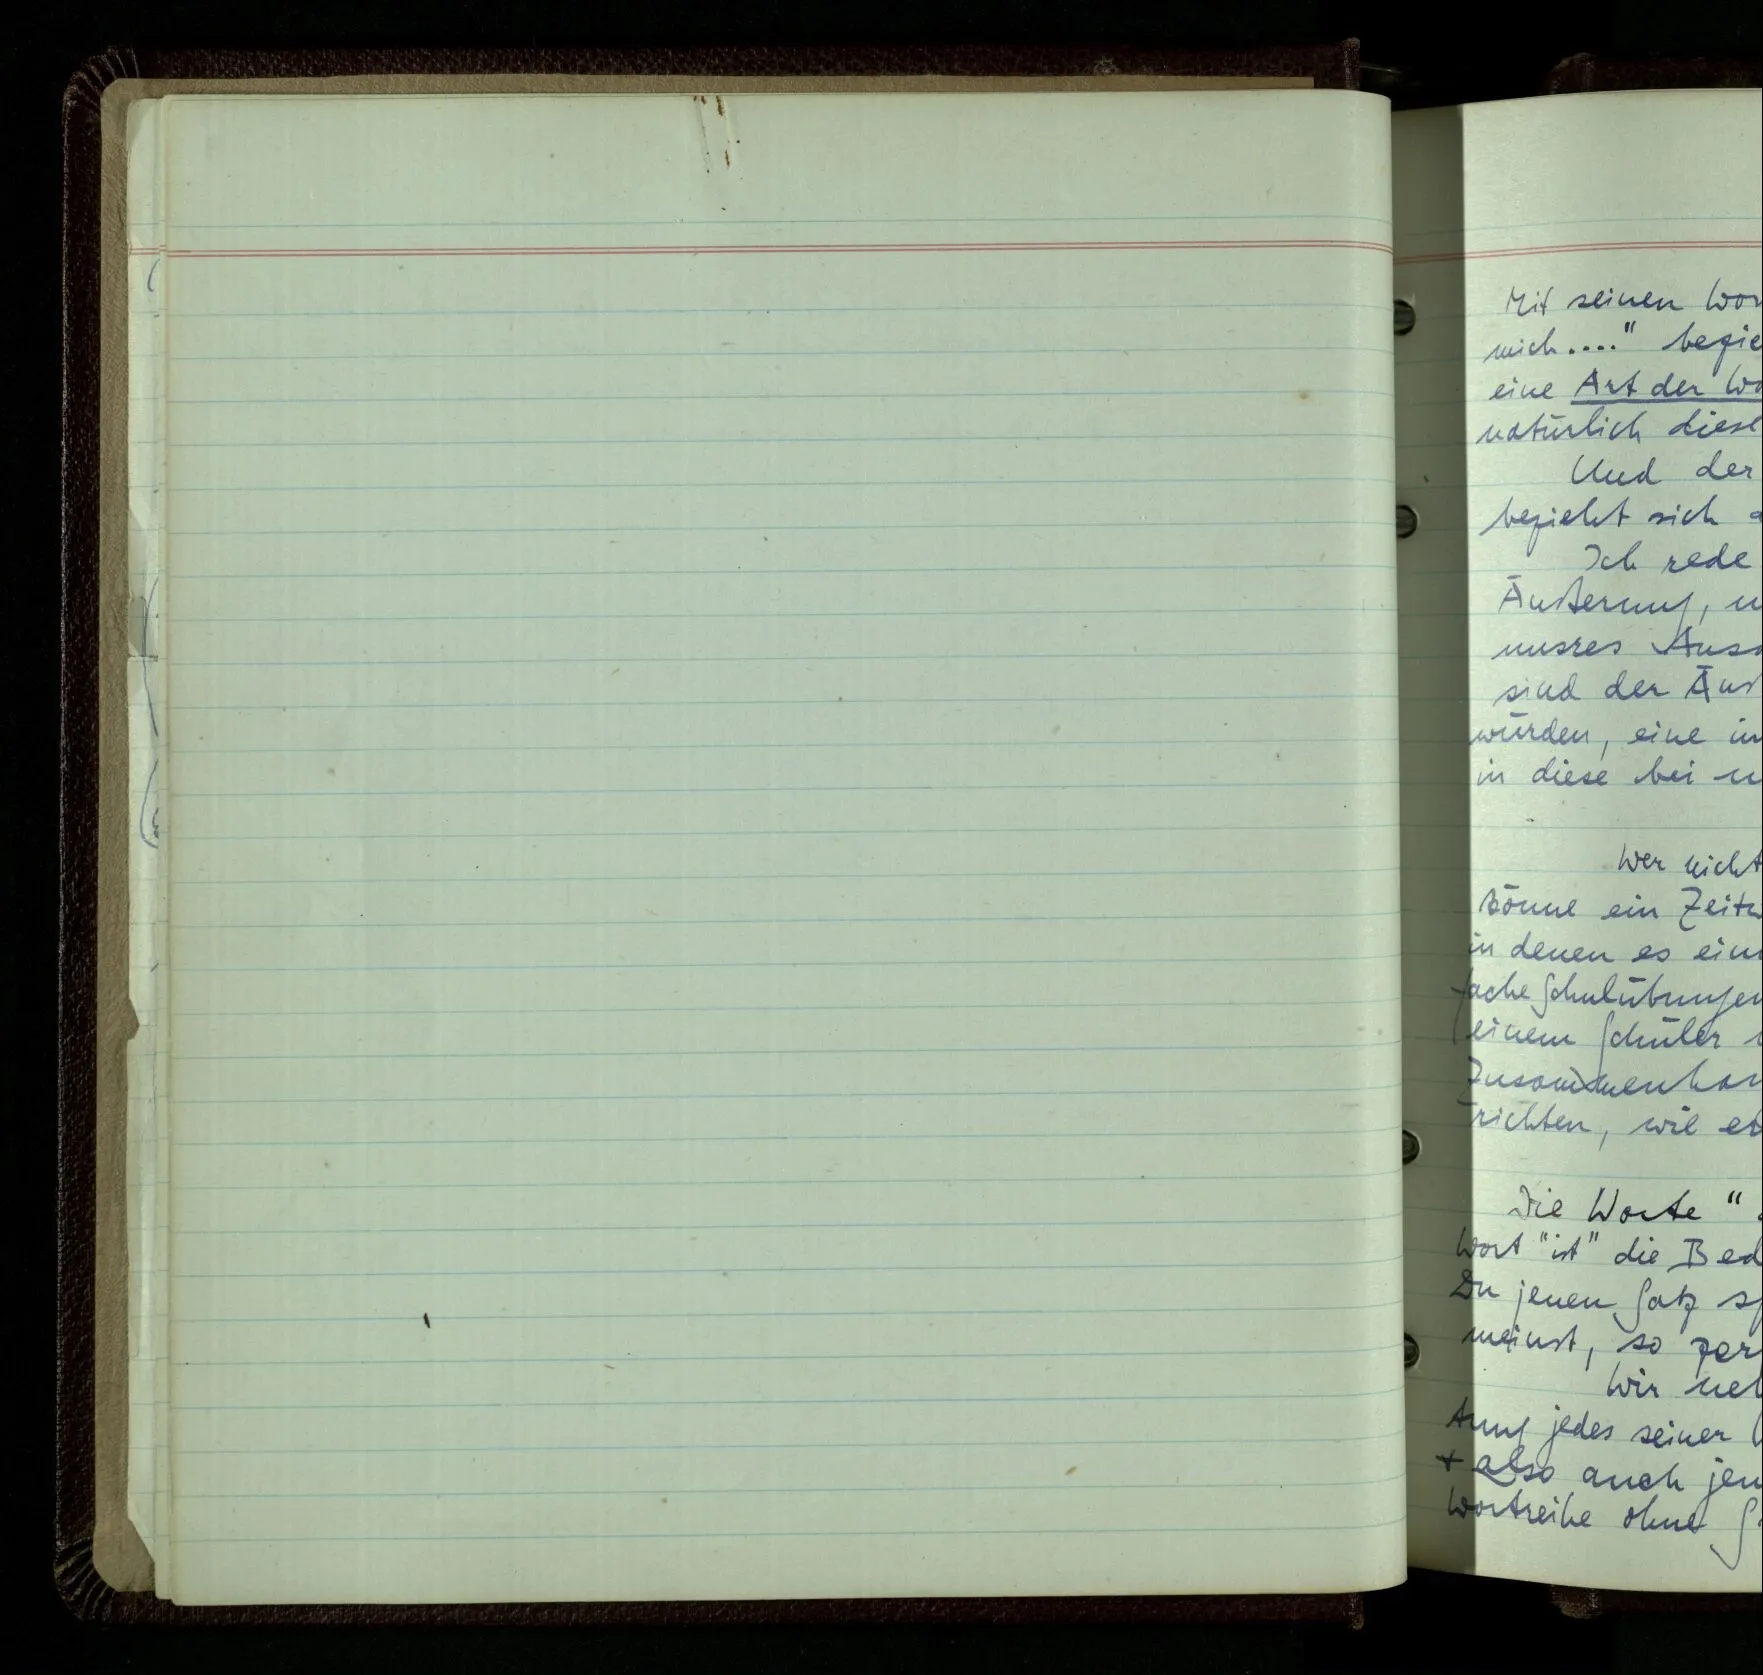 Mit seinen Wor
mich...." bezie
eine Art der Wo
natürlich diesel
Und der
bezieht sich a
Ich rede
Äußerung, u
unsres Auss
sind der Äuß
würden, eine in
in diese bei u
Wer nicht
könne ein Zeitw
in denen es eine
fache Schulübungen
einem Schüler
Zusammenhan
richten, wie er
Die Worte "
Wort "ist" die Bed
Du jenen Satz sp
meinst, so zer
Wir neh
Anuf jedes seiner
+ also auch jen
Wortreihe ohne